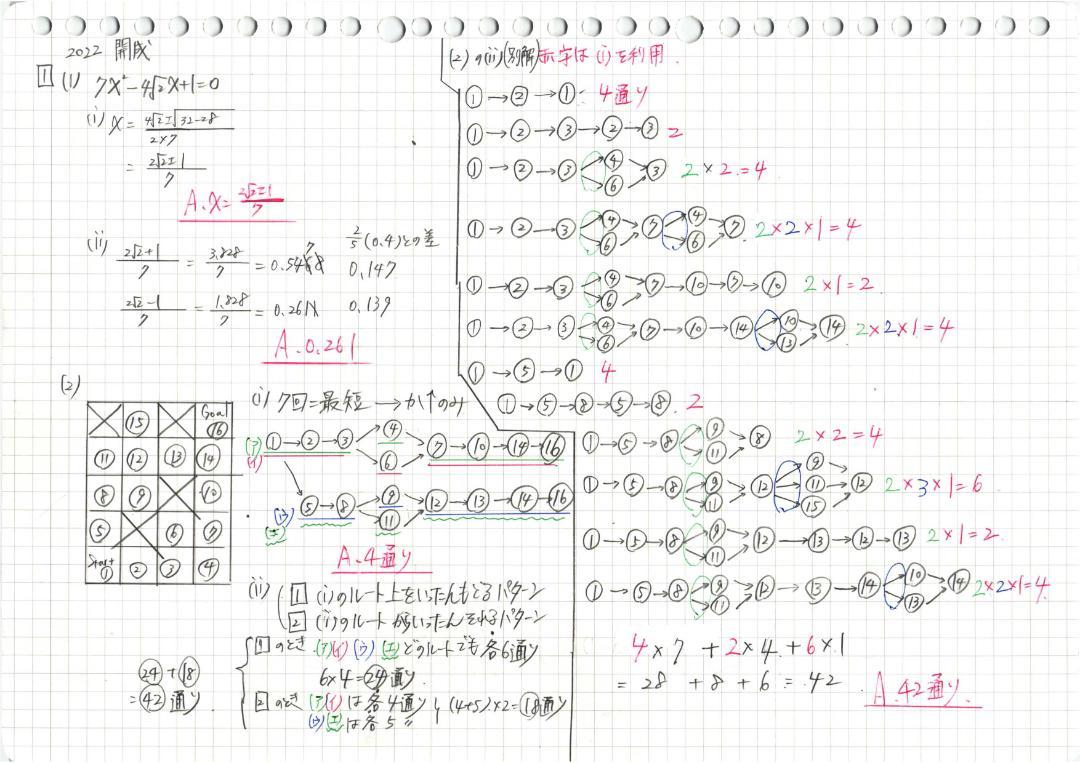 2022 開成
1 (1) 7x²-4√2x+1=0
(i) x = (4√2±√(32-28))/(2×7)
= (2√2±1)/7
A. x = (2√2±1)/7
(ii) (2√2+1)/7 = 3.828/7 = 0.5468
2/5 (0.4)との差
0.147
(2√2-1)/7 = 1.828/7 = 0.261
0.139
A. 0.261
(2)
⑮ Goal ⑯
⑪ ⑫ ⑬ ⑭
⑧ ⑨ ⑩
⑤ ⑥ ⑦
Start ① ② ③ ④
(i) 7回=最短 → →か↑のみ
(ア) (イ) ①→②→③ ④ ⑥ ⑦→⑩→⑭→⑯
(ウ) (エ) ⑤→⑧ ⑨ ⑪ ⑫→⑬→⑭→⑯
A. 4通り
(ii) 1 (i)のルート上をいったんもどるパターン
2 (i)のルートからいったんそれるパターン
1のとき (ア)(イ)(ウ)(エ)どのルートでも各6通り
6×4=24通り
2のとき (ア)(イ)は各4通り (4+5)×2=18通り
(ウ)(エ)は各5〃
24+18
=42通り
(2)の(ii)(別解)赤字は(i)を利用.
①→②→①: 4通り
①→②→③→②→③ 2
①→②→③ ④ ⑥ ③ 2×2=4
①→②→③ ④ ⑥ ⑦ ④ ⑥ ⑦ 2×2×1=4
①→②→③ ④ ⑥ ⑦→⑩→⑦→⑩ 2×1=2
①→②→③ ④ ⑥ ⑦→⑩→⑭ ⑩ ⑬ ⑭ 2×2×1=4
①→⑤→① 4
①→⑤→⑧→⑤→⑧ 2
①→⑤→⑧ ⑨ ⑪ ⑧ 2×2=4
①→⑤→⑧ ⑨ ⑪ ⑫ ⑨ ⑪ ⑮ ⑫ 2×3×1=6
①→⑤→⑧ ⑨ ⑪ ⑫→⑬→⑫→⑬ 2×1=2
①→⑤→⑧ ⑨ ⑪ ⑫→⑬→⑭ ⑩ ⑬ ⑭ 2×2×1=4
4×7+2×4+6×1
=28+8+6=42
A. 42通り.